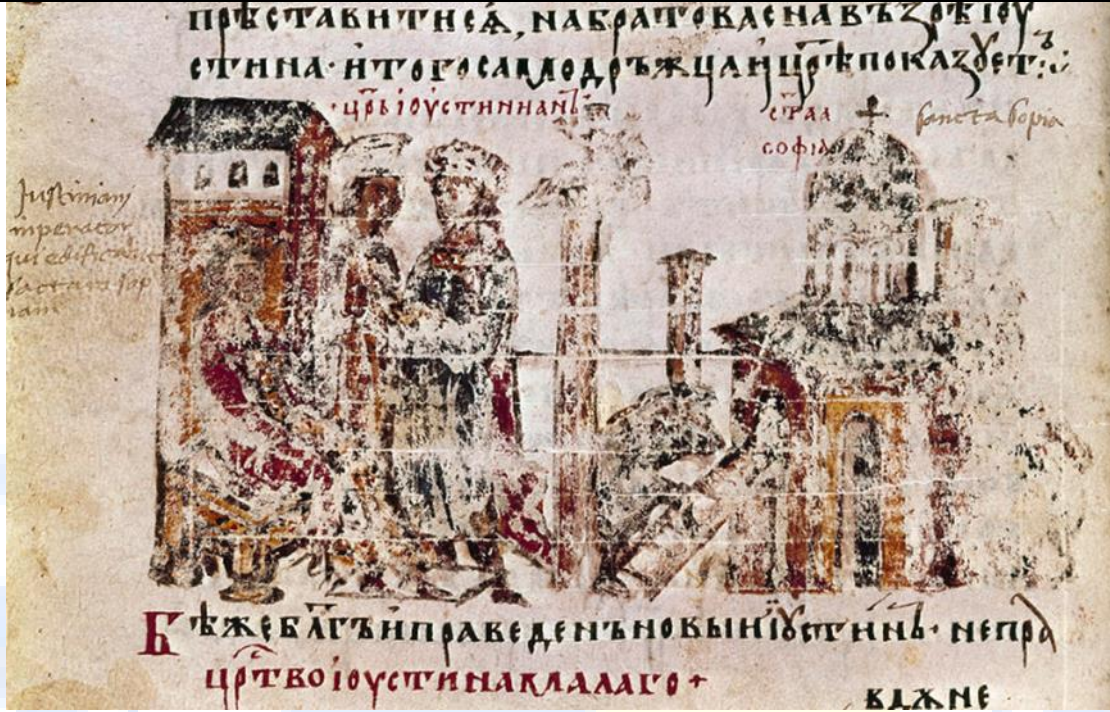 прѣставитисѧ, набратовас҃навъзрѣіоу
стина· итогосамодръжцаицр҃ѣпоказꙋетъ:·
·цр҃ьіоустининанъ
ст҃аа
софіа
sancta sopia
Justiniani
imperator
qui edificauit
sactam sop
iam
Бѣжебл҃гъиправеденъновыиіꙋстинь· непра
цр҃твоіоустинамалаго+
вдѫне